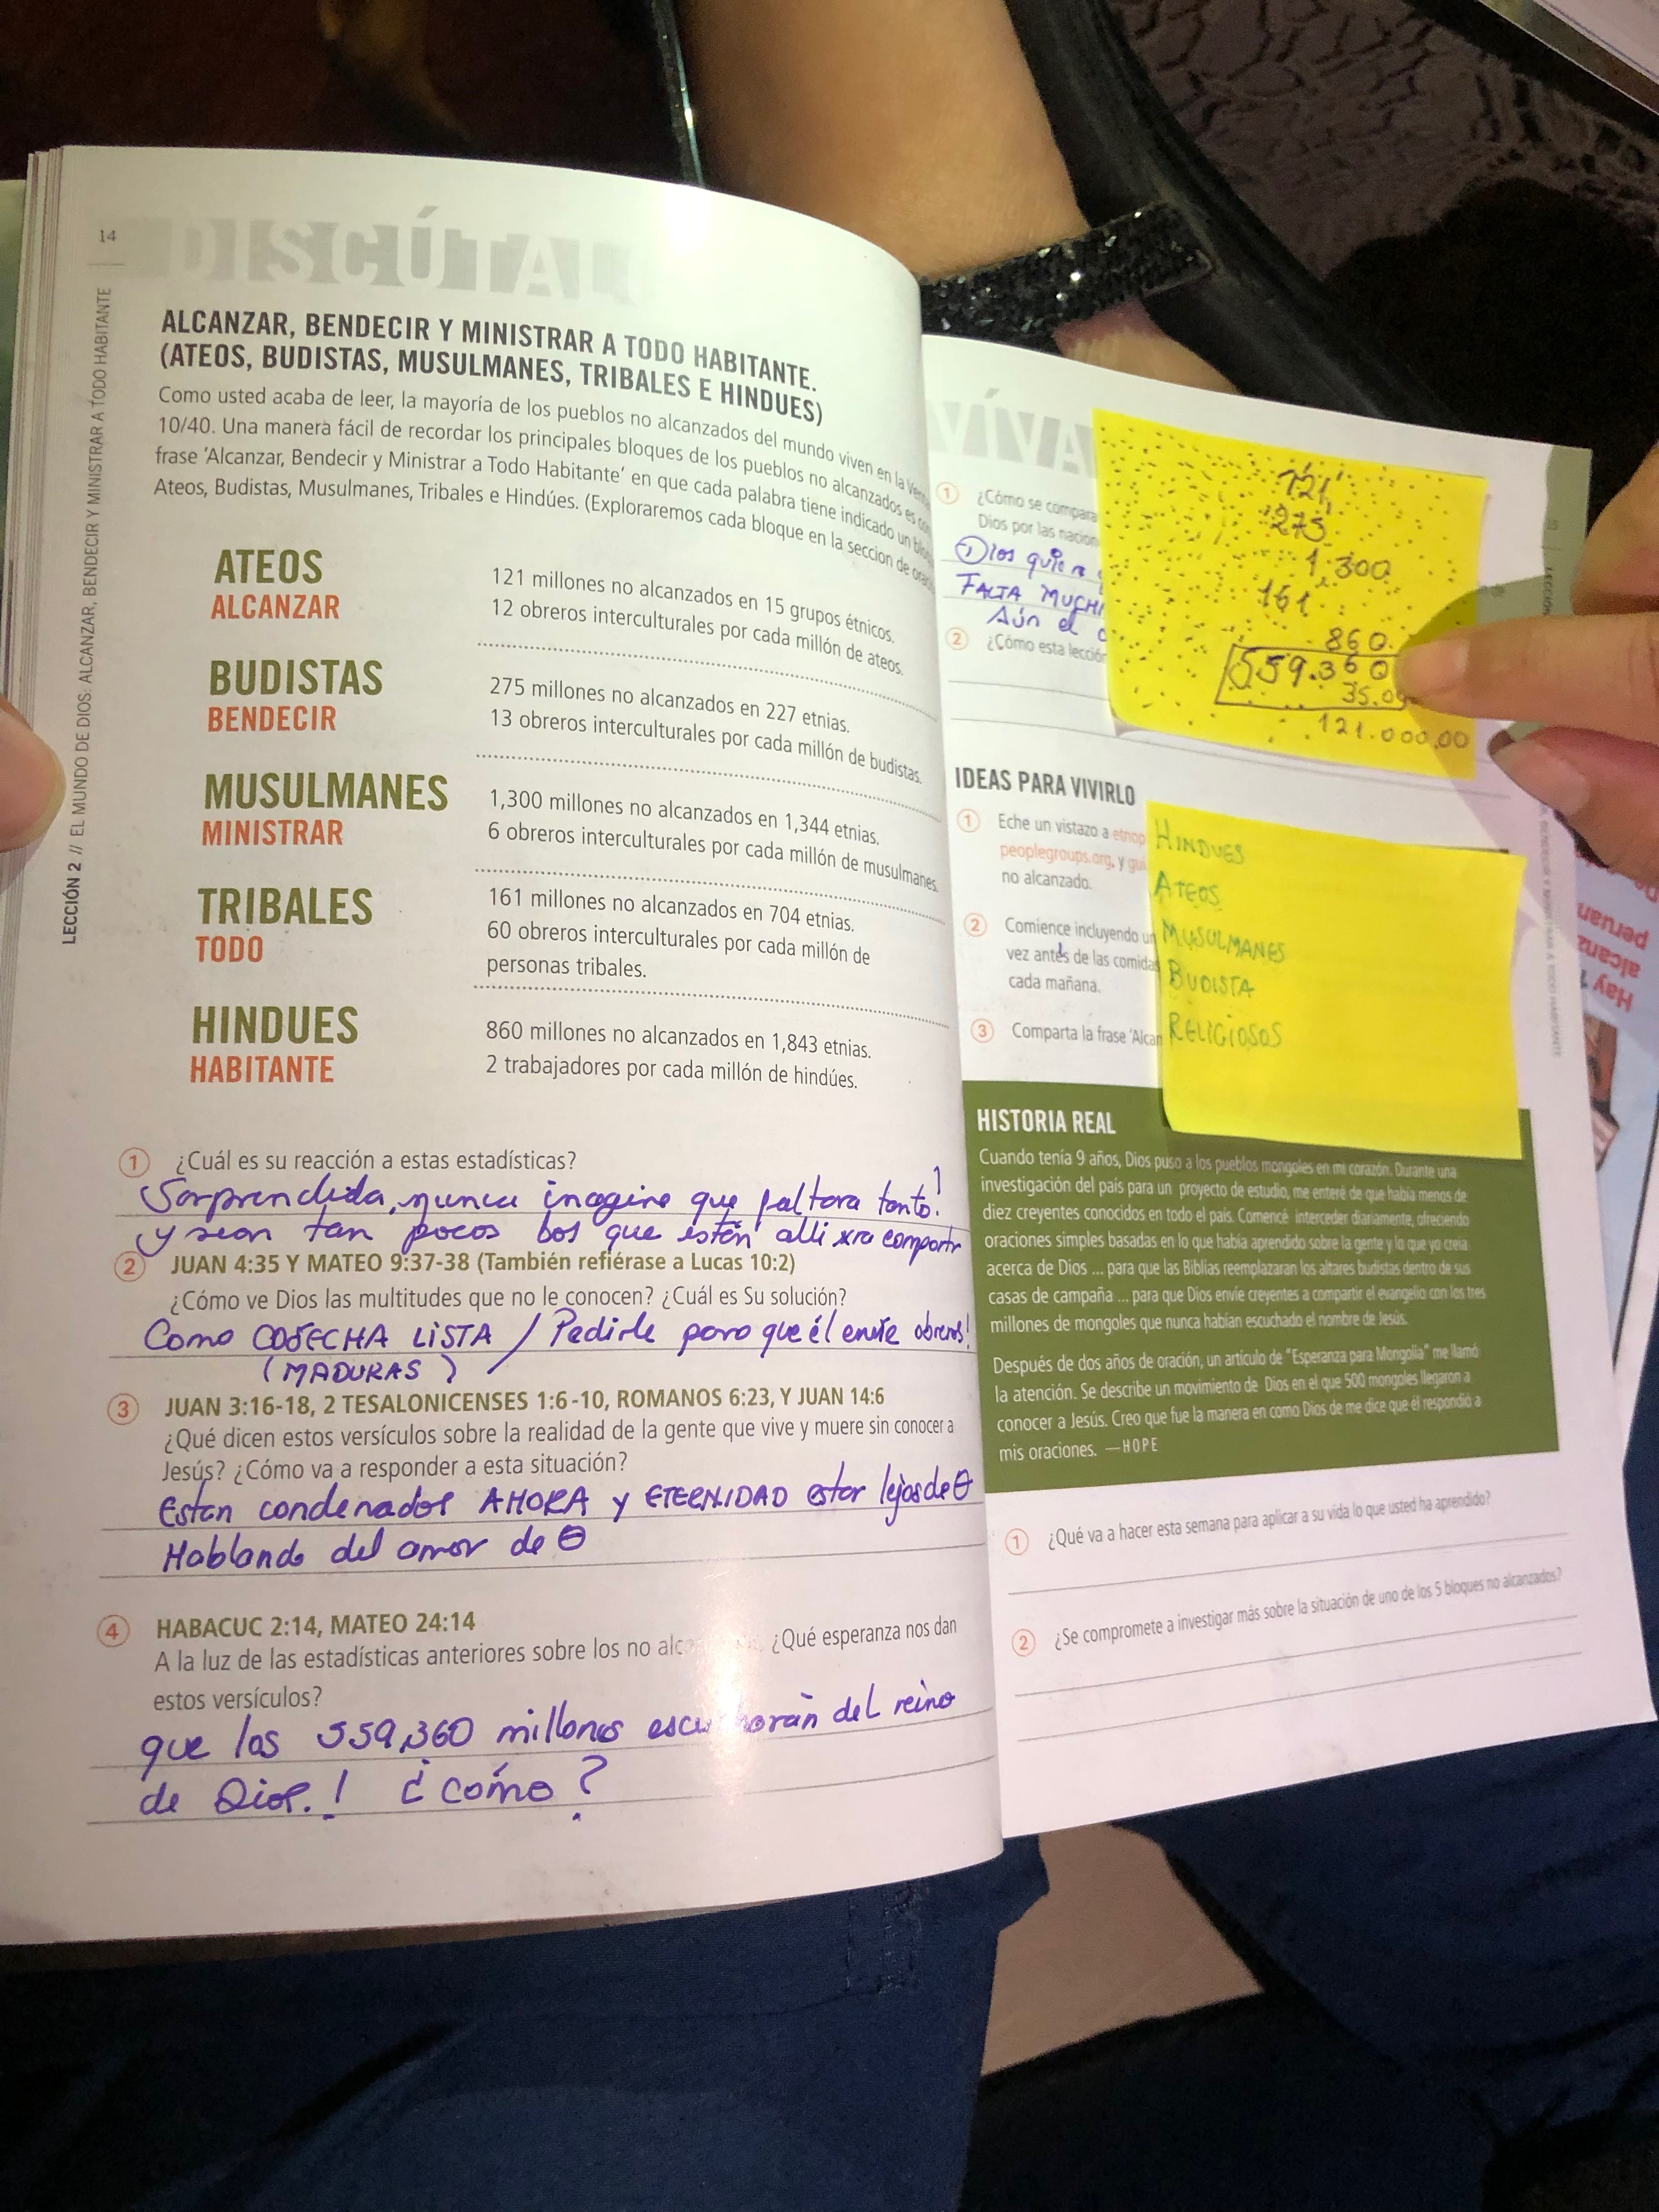 14
DISCÚTAL
LECCIÓN 2 // EL MUNDO DE DIOS: ALCANZAR, BENDECIR Y MINISTRAR A TODO HABITANTE
ALCANZAR, BENDECIR Y MINISTRAR A TODO HABITANTE.
(ATEOS, BUDISTAS, MUSULMANES, TRIBALES E HINDUES)
Como usted acaba de leer, la mayoría de los pueblos no alcanzados del mundo viven en la
10/40. Una manera fácil de recordar los principales bloques de los pueblos no alcanzados es
frase 'Alcanzar, Bendecir y Ministrar a Todo Habitante' en que cada palabra tiene indicado un
Ateos, Budistas, Musulmanes, Tribales e Hindúes. (Exploraremos cada bloque en la seccion de
ATEOS
ALCANZAR
121 millones no alcanzados en 15 grupos étnicos.
12 obreros interculturales por cada millón de ateos.
BUDISTAS
BENDECIR
275 millones no alcanzados en 227 etnias.
13 obreros interculturales por cada millón de budistas.
MUSULMANES
MINISTRAR
1,300 millones no alcanzados en 1,344 etnias.
6 obreros interculturales por cada millón de musulmanes.
TRIBALES
TODO
161 millones no alcanzados en 704 etnias.
60 obreros interculturales por cada millón de
personas tribales.
HINDUES
HABITANTE
860 millones no alcanzados en 1,843 etnias.
2 trabajadores por cada millón de hindúes.
1 ¿Cuál es su reacción a estas estadísticas?
Sorprendida, nunca imagine que faltara tanto!
y sean tan pocos los que estén alli xra compartir
2 JUAN 4:35 Y MATEO 9:37-38 (También refiérase a Lucas 10:2)
¿Cómo ve Dios las multitudes que no le conocen? ¿Cuál es Su solución?
Como COSECHA LISTA / Pedirle para que él envíe obreros!
(MADURAS)
3 JUAN 3:16-18, 2 TESALONICENSES 1:6-10, ROMANOS 6:23, Y JUAN 14:6
¿Qué dicen estos versículos sobre la realidad de la gente que vive y muere sin conocer a
Jesús? ¿Cómo va a responder a esta situación?
Estan condenados AHORA y ETERNIDAD estar lejos de θ
Hablando del amor de θ
4 HABACUC 2:14, MATEO 24:14
A la luz de las estadísticas anteriores sobre los no ¿Qué esperanza nos dan
estos versículos?
que los 559,360 millones escucharán del reino
de Dios.! ¿cómo?
VÍVA
1 ¿Cómo se compara
Dios por las nacion
Dios quiere
FALTA MUCH
Aún el
2 ¿Cómo esta lección
121
275
1.300
161
860
559.360
35.0
121.000,00
IDEAS PARA VIVIRLO
1 Eche un vistazo a etnop
peoplegroups.org, y gui
no alcanzado.
2 Comience incluyendo un
vez antes de las comidas
cada mañana.
3 Comparta la frase 'Alcan
HINDUES
ATEOS
MUSULMANES
BUDISTA
RELIGIOSOS
HISTORIA REAL
Cuando tenía 9 años, Dios puso a los pueblos mongoles en mi corazón. Durante una
investigación del país para un proyecto de estudio, me enteré de que había menos de
diez creyentes conocidos en todo el país. Comencé interceder diariamente, ofreciendo
oraciones simples basadas en lo que había aprendido sobre la gente y lo que yo creía
acerca de Dios ... para que las Biblias reemplazaran los altares budistas dentro de sus
casas de campaña ... para que Dios envíe creyentes a compartir el evangelio con los tres
millones de mongoles que nunca habían escuchado el nombre de Jesús.
Después de dos años de oración, un artículo de "Esperanza para Mongolia" me llamó
la atención. Se describe un movimiento de Dios en el que 500 mongoles llegaron a
conocer a Jesús. Creo que fue la manera en como Dios de me dice que él respondió a
mis oraciones. —HOPE
1 ¿Qué va a hacer esta semana para aplicar a su vida lo que usted ha aprendido?
2 ¿Se compromete a investigar más sobre la situación de uno de los 5 bloques no alcanzados?
Hay
alcanza
peruan